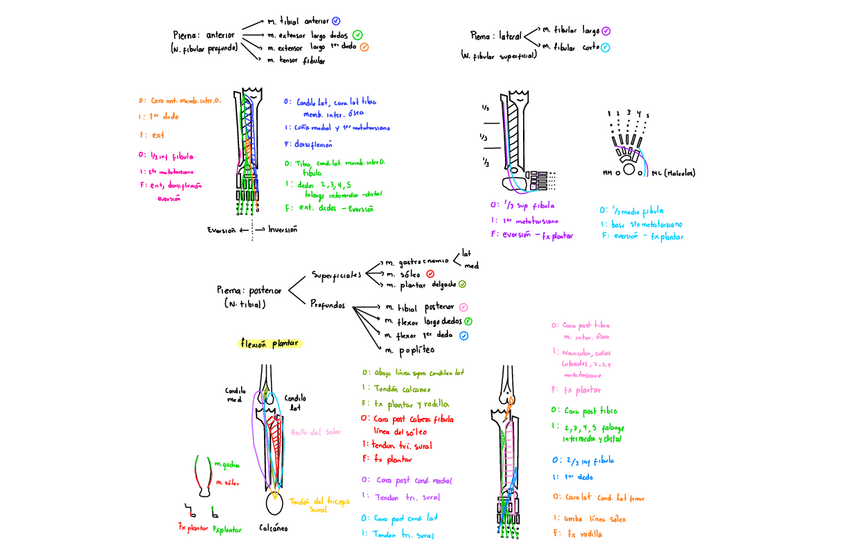 Pierna: anterior
(N. fibular profundo)
m. tibial anterior
m. extensor largo dedos
m. extensor largo 1er dedo
m. tensor fibular
Pierna: lateral
(N. fibular superficial)
m. fibular largo
m. fibular corto
O: Cara ant. memb. inter. O.
I: 1er dedo
F: ext
O: 1/3 inf fíbula
I: 5to metatarsiano
F: ext, dorsiflexión
eversión
O: Condilo lat, cara lat tibia
memb. inter. ósea
I: cuña medial y 1er metatarsiano
F: dorsiflexión
O: Tibia, cond lat. memb. inter O.
fíbula
I: dedos 2,3,4,5
falange intermedia - distal
F: ext. dedos - eversión
Eversión
Inversión
1/3
1/3
1 2 3 4 5
MM
ML (Maleolos)
O: 1/3 sup fíbula
I: 1er metatarsiano
F: eversión - fx plantar
O: 1/3 medio fíbula
I: base 5to metatarsiano
F: eversión - fx plantar
Pierna: posterior
(N. tibial)
Superficiales
m. gastrocnemio
lat
med
m. sóleo
m. plantar delgado
Profundos
m. tibial posterior
m. flexor largo dedos
m. flexor 1er dedo
m. poplíteo
flexión plantar
Condilo
med
Condilo
lat
Anillo del soleo
m. gastro
m. sóleo
Fx plantar
Fx plantar
Tendón del triceps
sural
Calcáneo
O: abajo línea supra condilea lat
I: Tendón calcáneo
F: fx plantar y rodilla
O: Cara post cabeza fíbula
línea del sóleo
I: tendon tri. sural
F: fx plantar
O: Cara post cond. medial
I: Tendon tri. sural
O: Cara post cond lat
I: Tendon tri. sural
O: Cara post tibia
m. inter. ósea
I: Navicular, cuñas
cuboides, 2,3,4
metatarsiano
F: fx plantar
O: Cara post tibia
I: 2,3,4,5 falange
intermedia y distal
O: 2/3 inf fíbula
I: 1er dedo
O: Cara lat cond. lat femur
I: arriba línea sóleo
F: fx rodilla